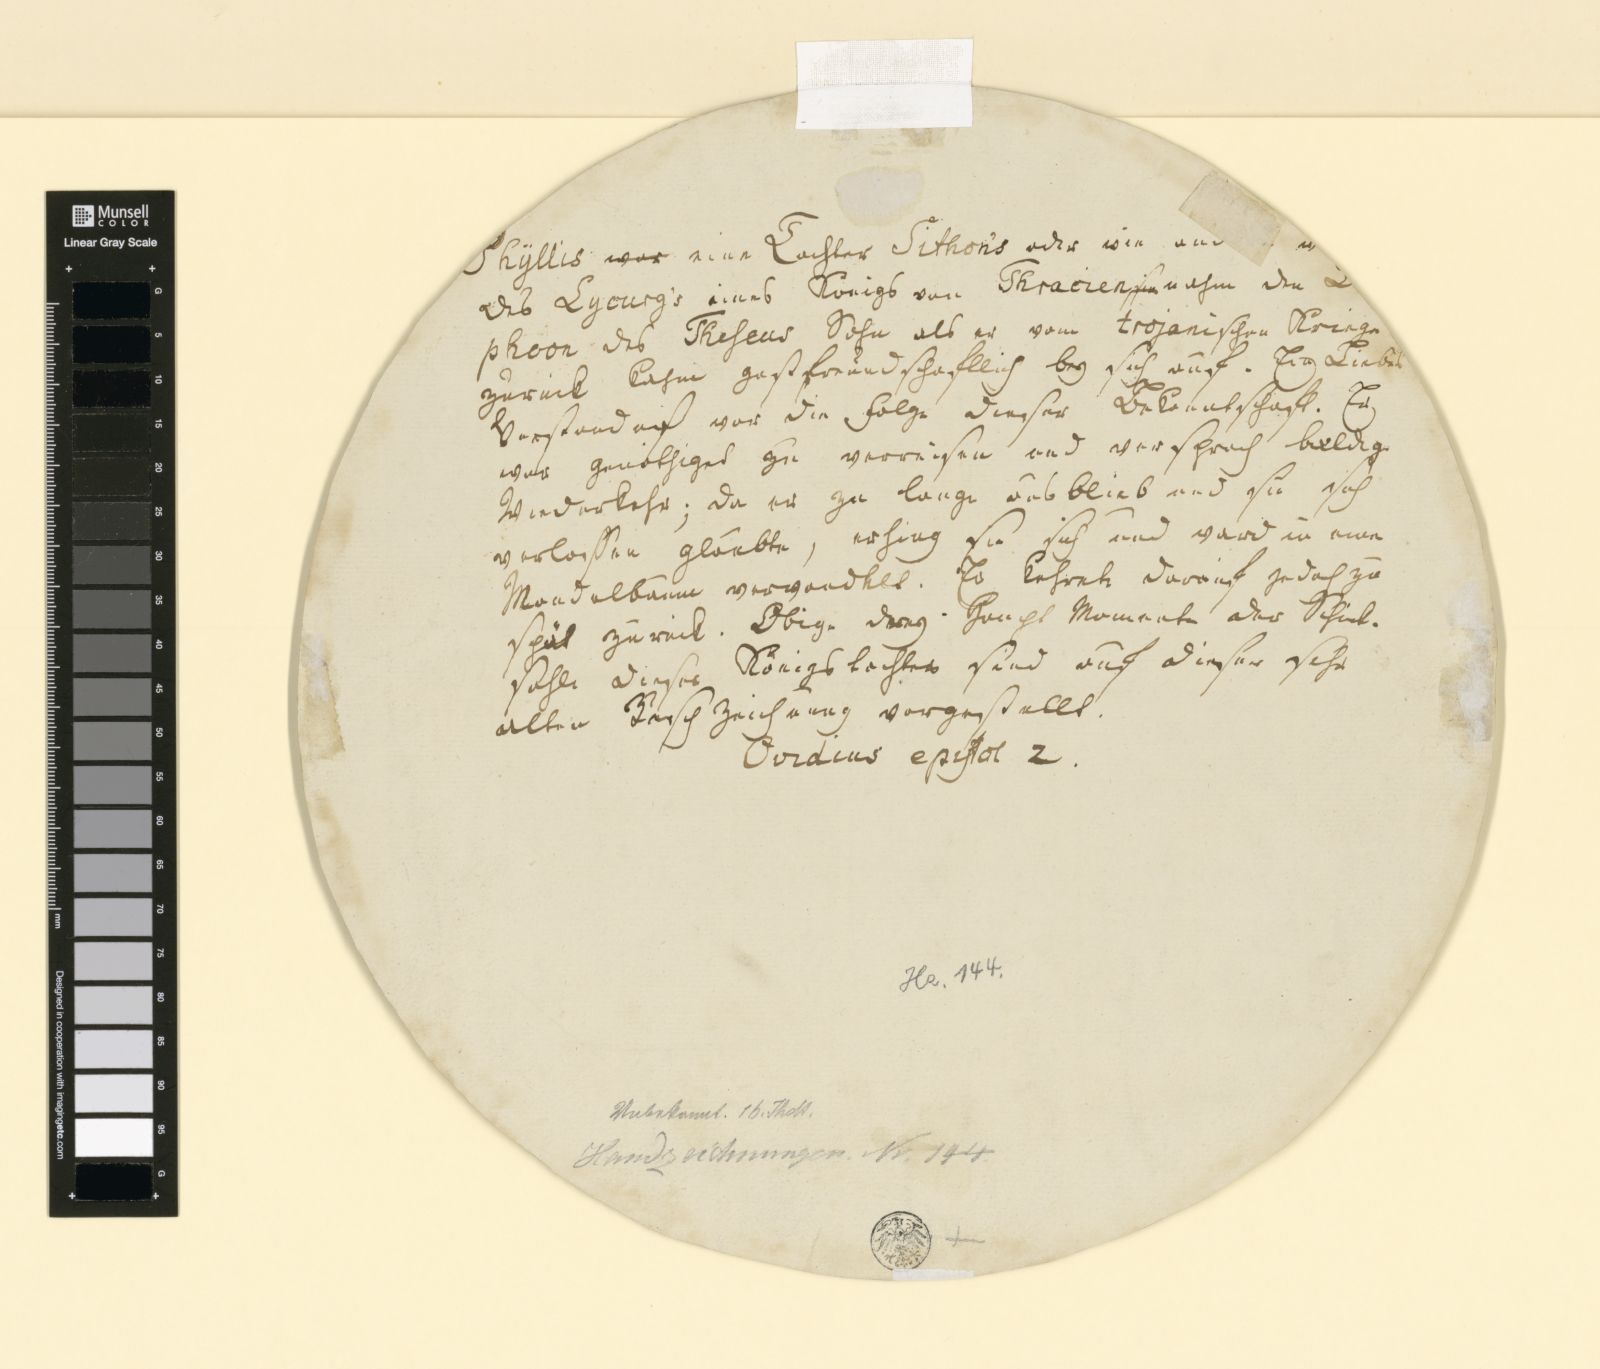 Phyllis war eine Tochter Sithon's oder wie
des Lycurg's eines Königs von Thracien, sie nahm den
phoon des Theseus Sohn als er vom trojanischen Kriege
zurück kahm gastfreundschaftlich bey sich auf. Ein Liebes
Verständniß war die Folge dieser Bekanntschaft. Er
war genöthiget zu verreisen und versprach baldige
Wiederkehr; da er zu lange ausblieb und sie sich
verlassen glaubte, erhing sie sich und ward in einen
Mandelbaum verwandelt. Er kehrete darauf jedoch zu
spät zurück. Obige drey Haupt Momente der Schick-
sahle dieser Königstochter sind auf dieser sehr
alten Zeichnung vorgestellt.
Ovidius epistol 2.
Hz. 144.
Unbekannt. 16. Jhdt.
Handzeichnungen. Nr. 144
Munsell
COLOR
Linear Gray Scale
G
5
10
15
20
25
30
35
40
45
50
55
60
65
70
75
80
85
90
95
G
mm
Designed in cooperation with imagingetc.com